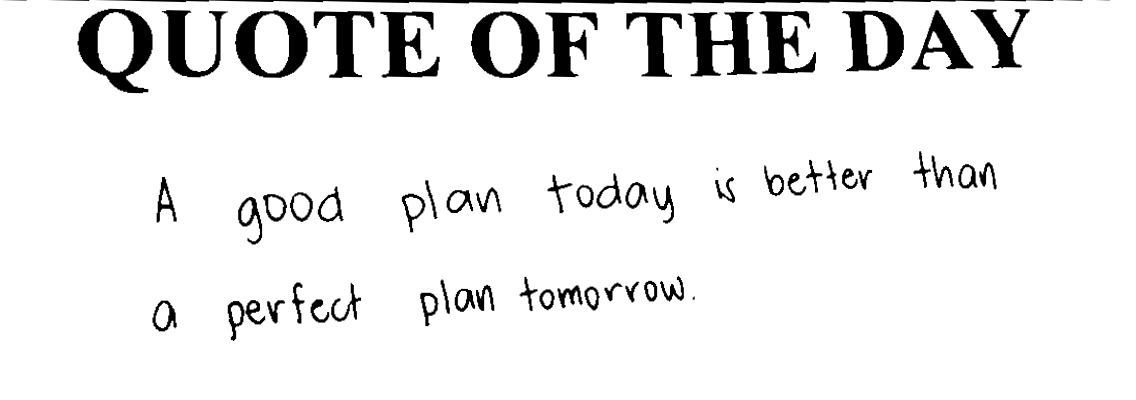 QUOTE OF THE DAY
A good plan today is better than
a perfect plan tomorrow.